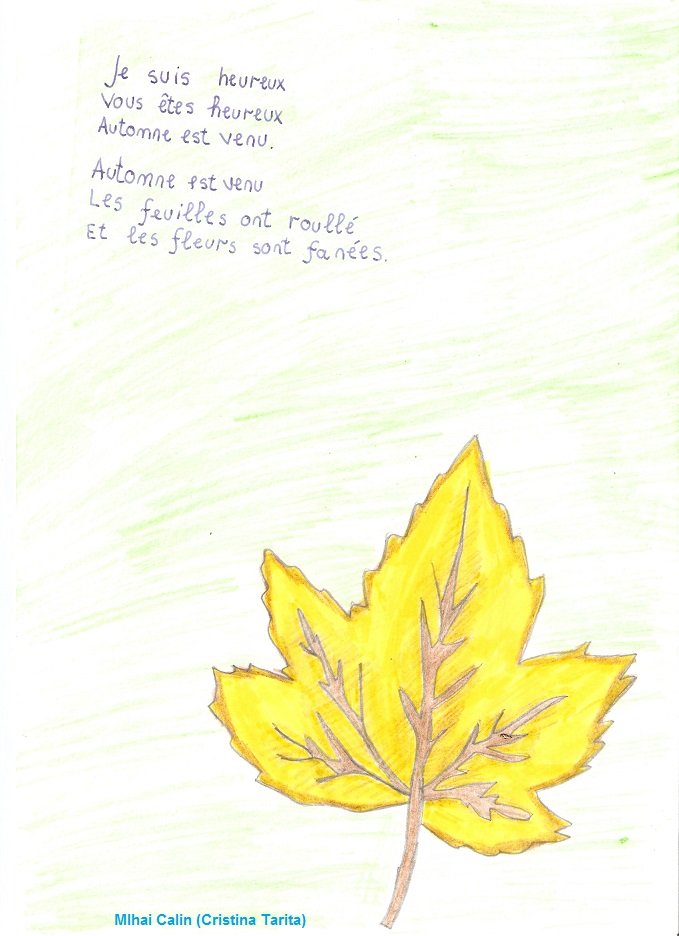 Je suis heureux
Vous êtes heureux
Automne est venu.
Automne est venu
Les feuilles ont roullé
Et les fleurs sont fanées.
MIhai Calin (Cristina Tarita)